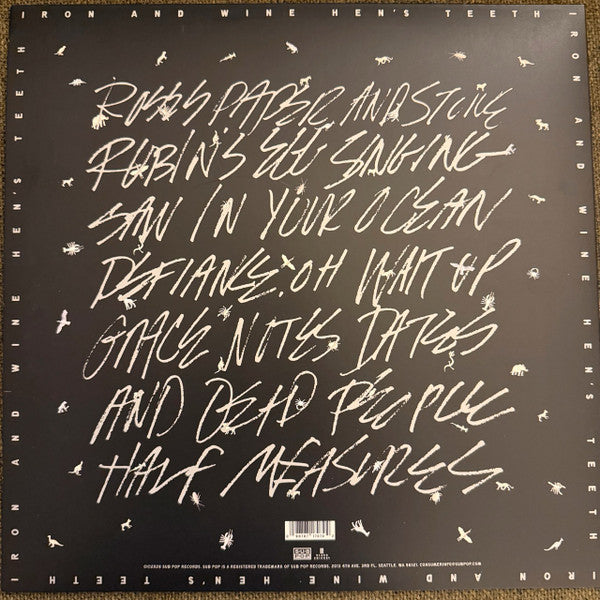 IRON AND WINE HEN'S TEETH
IRON AND WINE HEN'S TEETH
IRON AND WINE HEN'S TEETH
ROSES PAPER AND STONE
ROBIN'S EGG SINGING
SAW IN YOUR OCEAN
DEFIANCE OH WAIT UP
GRACE NOTES DATES
AND DEAD PEOPLE
HALF MEASURES
SUB POP
2026 SUB POP RECORDS. SUB POP IS A REGISTERED TRADEMARK OF SUB POP RECORDS, 2013 4TH AVE, 3RD FL, SEATTLE, WA 98121. CONSUMERINFO@SUBPOP.COM
IRON AND WINE HEN'S TEETH